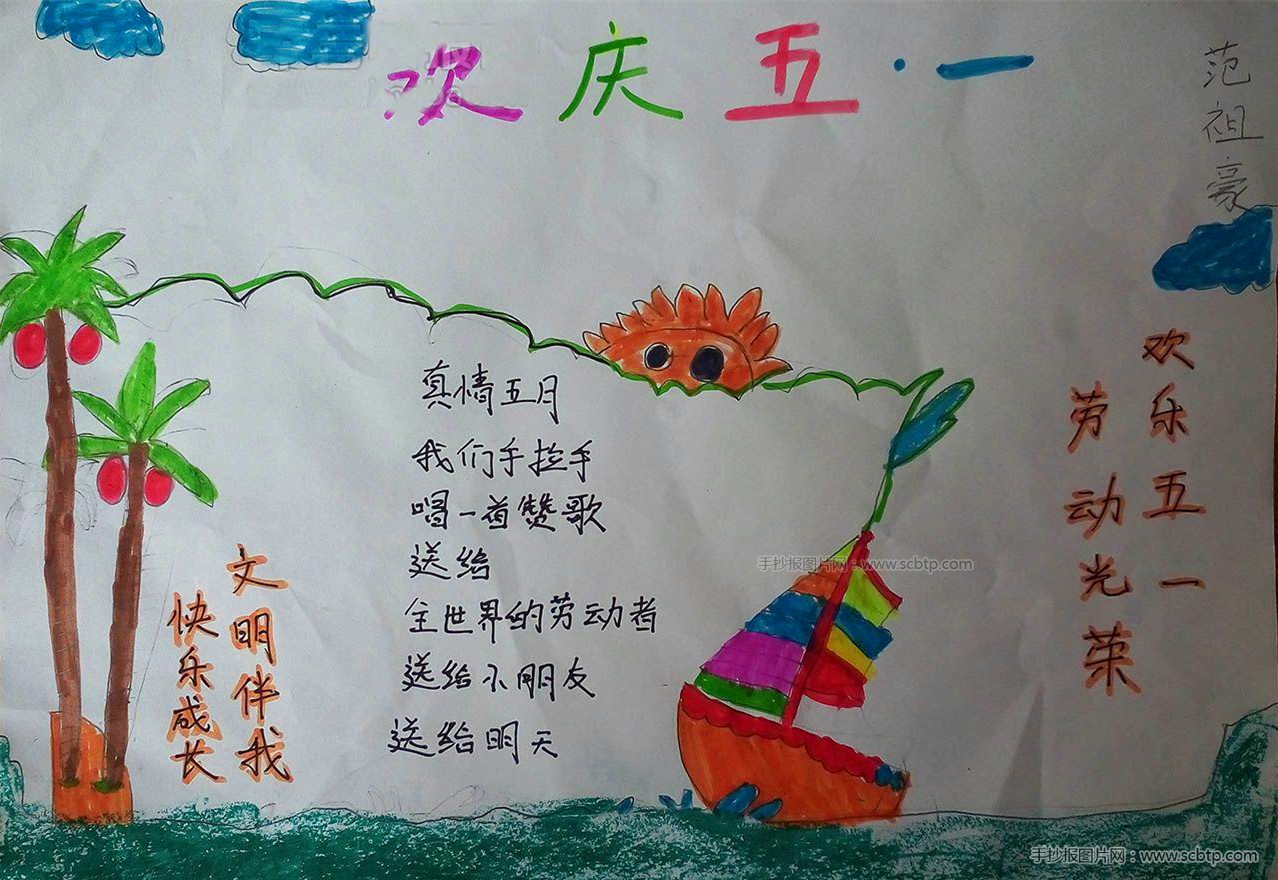 欢庆五·一
范祖豪
真情五月
我们手拉手
唱一首赞歌
送给
全世界的劳动者
送给小朋友
送给明天
欢乐五一
劳动光荣
文明伴我
快乐成长
手抄报图片网：www.scbtp.com
手抄报图片网：www.scbtp.com